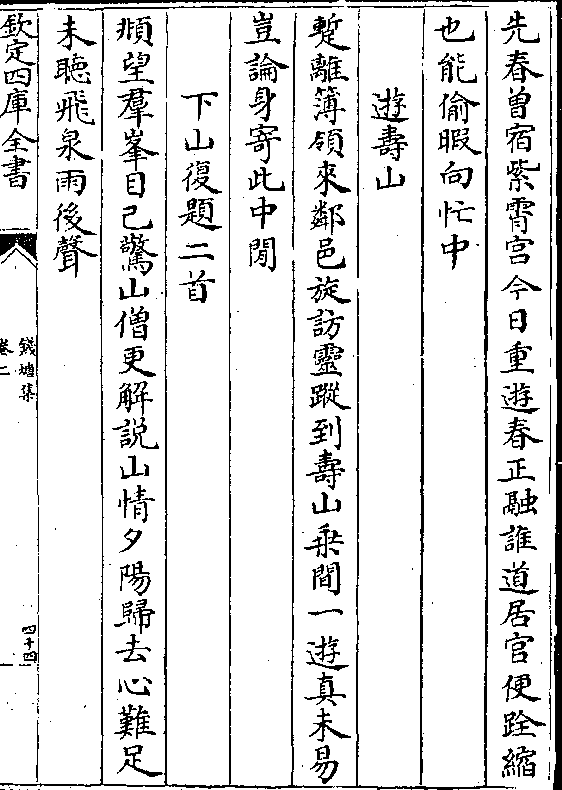 先春曽宿紫霄宫今日重遊春正融誰道居官便跧縮
也能偷暇向忙中
遊壽山
蹔離簿領來鄰邑旋訪靈蹤到壽山乗間一遊真未易
豈論身寄此中閒
下山復題二首
頻望羣峯目已驚山僧更解説山情夕陽歸去心難足
未聽飛泉雨後聲
欽定四庫全書
錢塘集
卷二
四十四